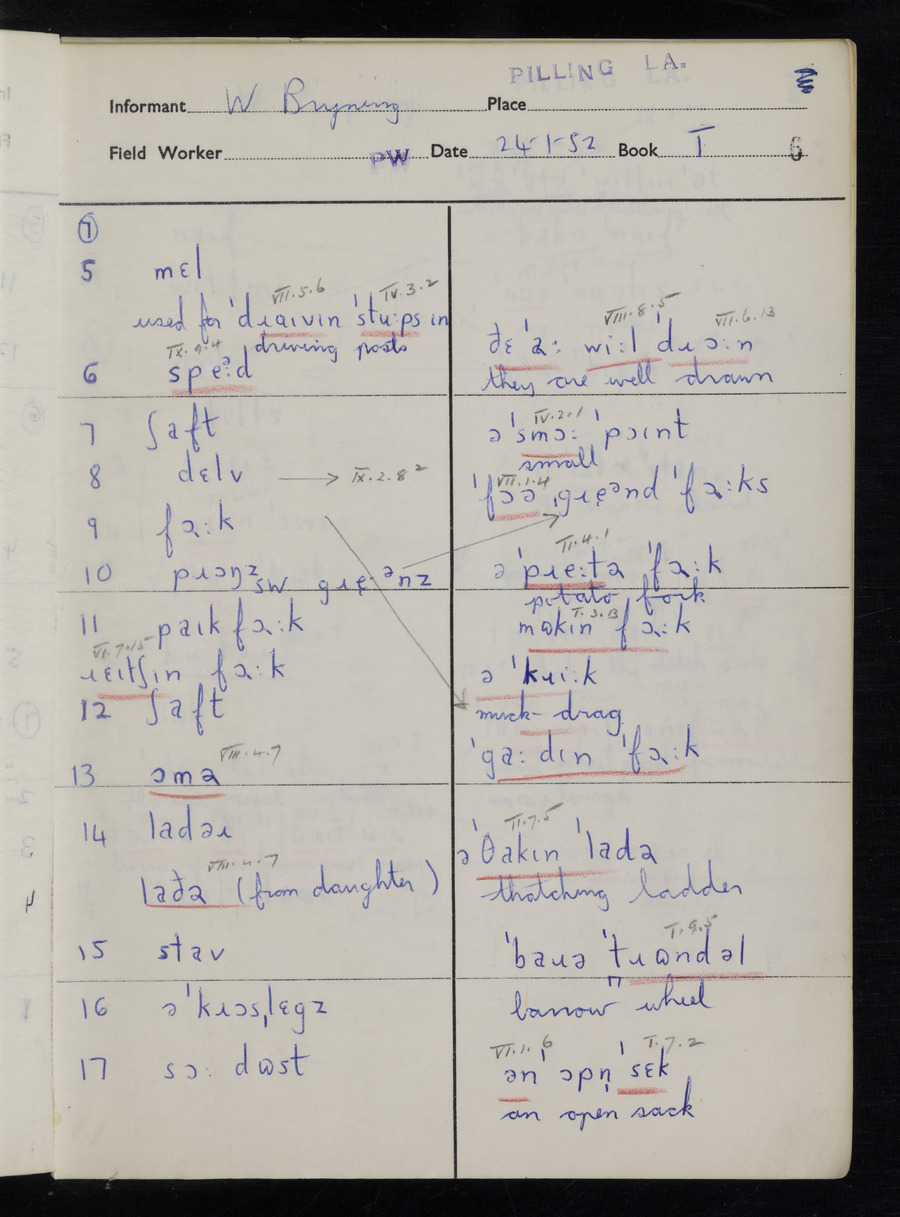 PILLING LA.
Informant W Bryning Place
Field Worker PW Date 24-1-52 Book I 6
7
5 mɛl
VII.5.6 IV.3.2
used for ˈdɹaɪvɪn ˈstuːps in
driving posts
IX.9.4
6 speːᵊd
7 ʃaft
8 dɛlv → IX.2.8²
9 fɔːk
10 pɹɔŋz sw gɹeːᵊnz
11 paɪk fɔːk
VI.7.15
ɹɛɪtʃɪn fɔːk
12 ʃaft
VIII.4.7
13 ɔmə
14 ladəɹ
VIII.4.7
laðə (from daughter)
15 stav
16 əˈkɹɔsˌlɛgz
17 sɔː dʊst
VIII.8.5 VII.6.13
ðɛ ˈaː wiːl ˈdɹɔːn
they are well drawn
IV.2.1
əˈsmɔː ˈpɔɪnt
small
VII.1.4
ˈfɔə ˌgɹeᵊnd ˈfɔːks
II.4.1
ə ˈpɹeːtə ˈfɔːk
potato fork
I.3.13
mʊkɪn fɔːk
ə ˈkɹiːk
muck-drag
ˈgaːdɪn ˈfɔːk
II.7.5
ə ˈθakɪn ˈladə
thatching ladder
I.9.5
ˈbaɹə ˈtɹʊndəl
barrow wheel
VI.1.6 I.7.2
ən ˈɔpn̩ ˈsɛk
an open sack